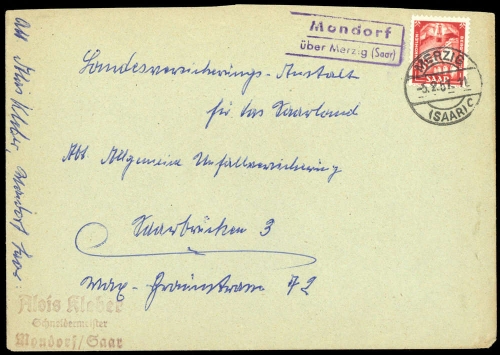 Mondorf
über Merzig (Saar)
SAAR
MERZIG
(SAAR) C
Landesversicherungs-Anstalt
für das Saarland
Abt Allgemeine Unfallversicherung
Saarbrücken 3
Max-Braunstrasse 72
Alois Kleber, Mondorf Saar
Alois Kleber
Schneidermeister
Mondorf/Saar